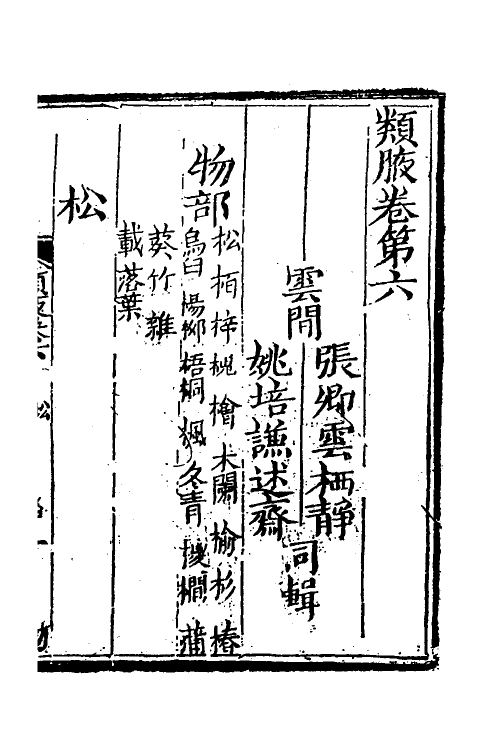 類腋卷第六
雲間
張卿雲栖靜
姚培謙述齋
同輯
物部
松栢梓槐檜木闌榆杉椿
烏臼楊柳梧桐楓冬青椶櫚蒲
葵竹雜
載落葉
松
松